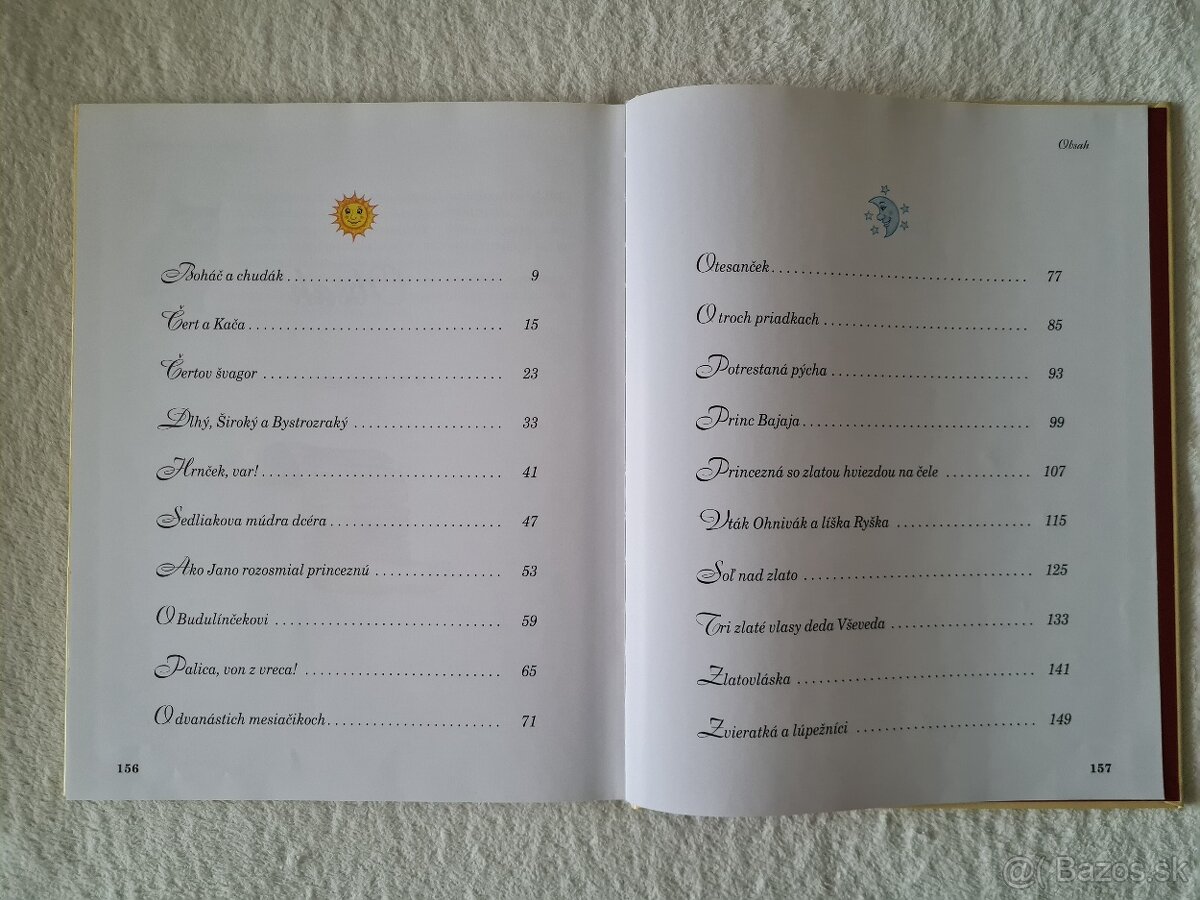 Boháč a chudák ........................ 9
Čert a Kača ........................ 15
Čertov švagor ........................ 23
Dlhý, Široký a Bystrozraký ........................ 33
Hrnček, var! ........................ 41
Sedliakova múdra dcéra ........................ 47
Ako Jano rozosmial princeznú ........................ 53
O Budulínčekovi ........................ 59
Palica, von z vreca! ........................ 65
O dvanástich mesiačikoch ........................ 71
156
Obsah
Otesanček ........................ 77
O troch priadkach ........................ 85
Potrestaná pýcha ........................ 93
Princ Bajaja ........................ 99
Princezná so zlatou hviezdou na čele ........................ 107
Vták Ohnivák a líška Ryška ........................ 115
Soľ nad zlato ........................ 125
Tri zlaté vlasy deda Vševeda ........................ 133
Zlatovláska ........................ 141
Zvieratká a lúpežníci ........................ 149
157
Bazos.sk